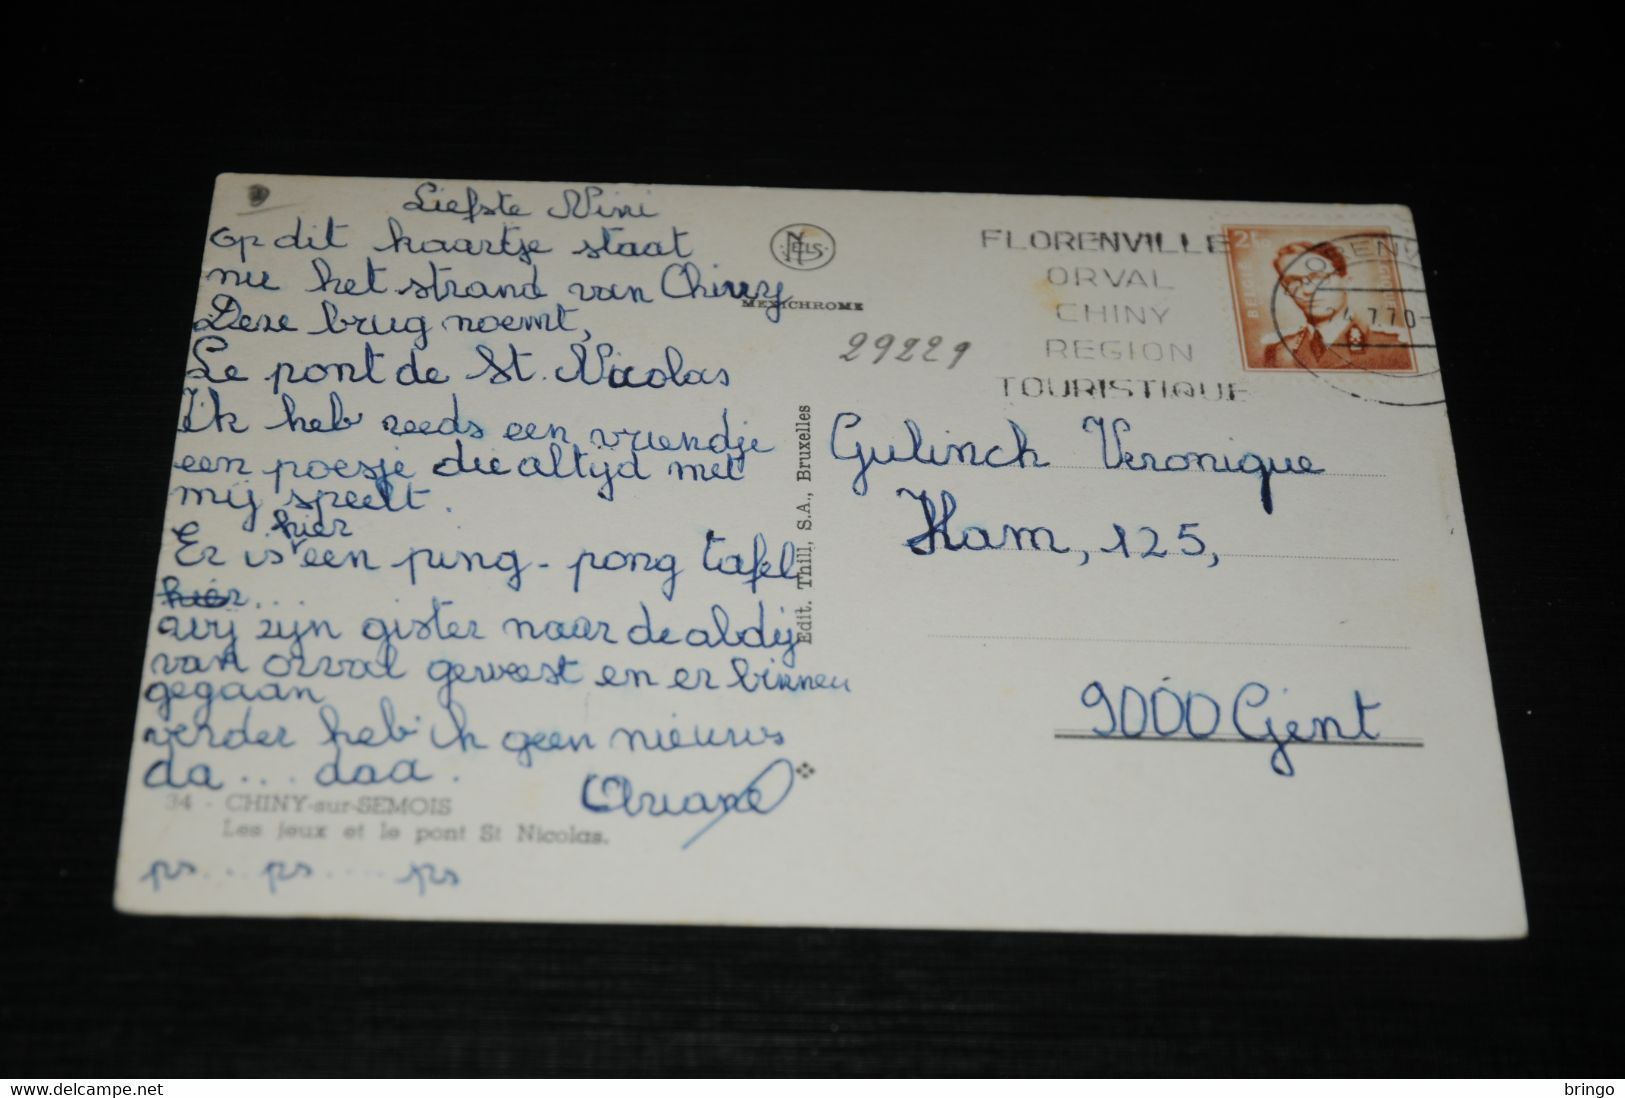 Liefste Nini
op dit kaartje staat
nu het strand van Chiny
Deze brug noemt,
Le pont de St. Nicolas
Ik heb reeds een vriendje
een poesje die altijd met
mij speelt.
hier
Er is een ping-pong tafel
hier...
wij zijn gister naar de abdij
van orval geweest en er binnen
gegaan
verder heb ik geen nieuws
da... daa.
Ariane
34 - CHINY-sur-SEMOIS
Les jeux et le pont St Nicolas.
ps... ps.... ps
NELS
MEXICHROME
29221
Edit. Thill, S.A., Bruxelles
FLORENVILLE
ORVAL
CHINY
REGION
TOURISTIQUE
BELGIË
24.7.70
Gulinck Veronique
Ham, 125,
9000 Gent
www.delcampe.net
bringo